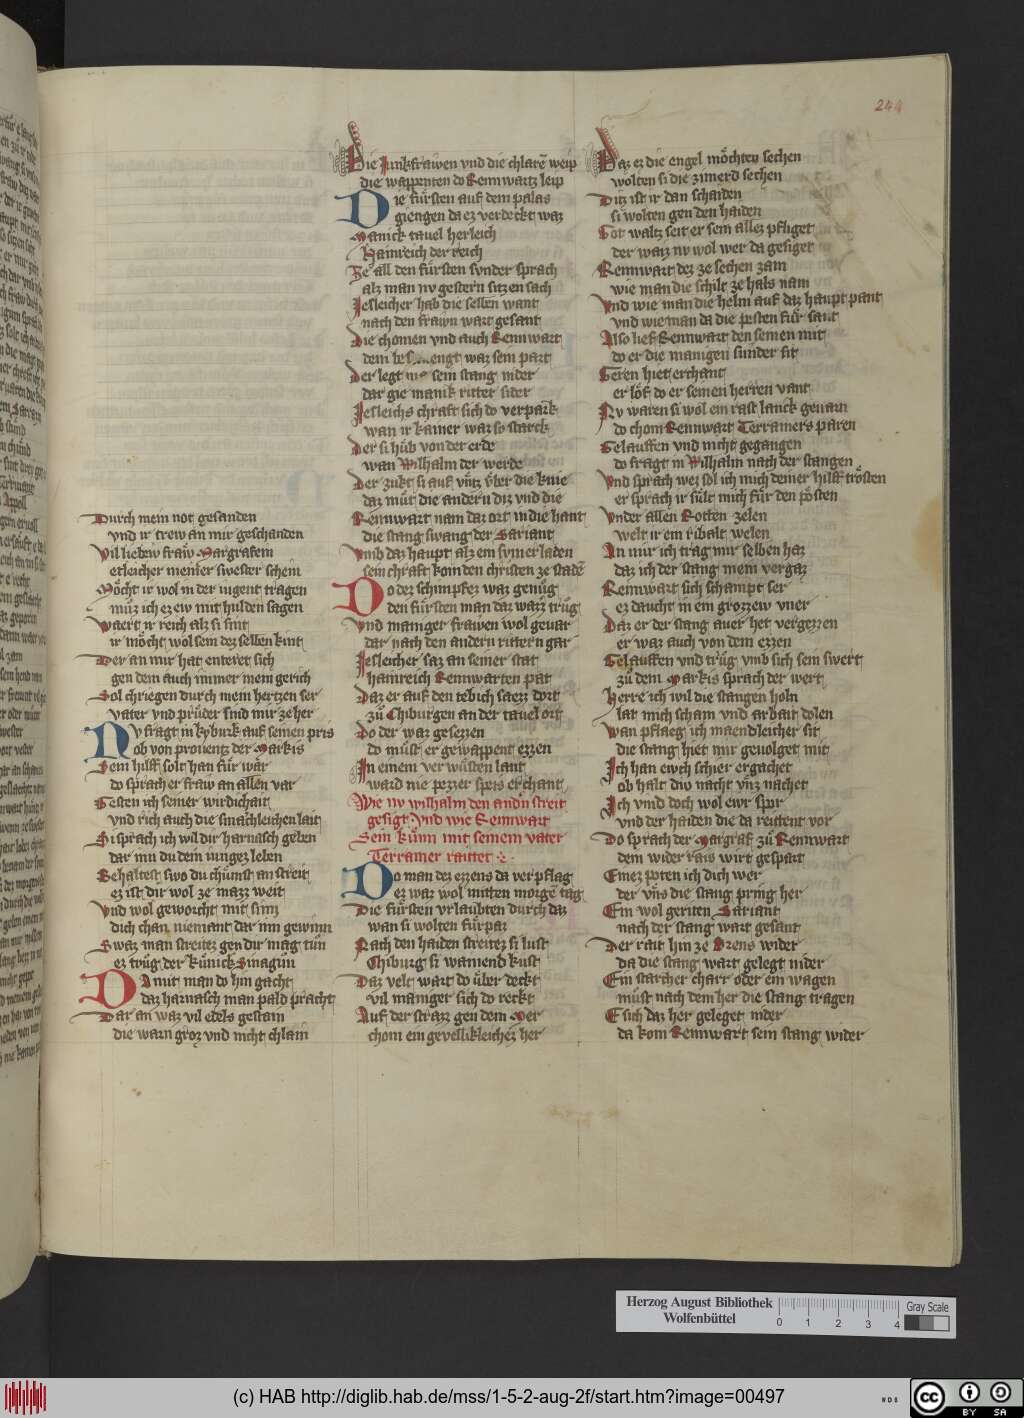 244
Durch mein not gesanden
vnd ir trew an mir geschanden
Vil liebew fraw Margrafein
etleicher meiner swester schein
Möcht ir wol in der iugent tragen
müz ich ez ew mit hulden sagen
Waert ir reich alz si sint
ir möcht wol sein dez selben kint
Der an mir hat enteret sich
gen dem auch immer mein gerich
Sol chriegen durch mein hertzen ser
vater vnd prüder sind mir ze her
Nv fragt in kyburk auf seinen pris
ob von prouentz der Markis
Sein hilff solt han für war
do sprach er fraw an allen var
Testen ich seiner wirdichait
vnd rich auch die smachleichen lait
Si sprach ich wil dir harnasch geben
dar inn du dein iungez leben
Behaltest swo du chumst an streit
ez ist dir wol ze mazz weit
Vnd wol geworcht mit sinn
dich chan niemant dar inn gewinn
Swaz man streitez gen dir mag tün
ez trüg der künick Sinagün
Da mit man do hin gacht
daz harnasch man pald pracht
Dar an waz vil edels gestain
die warn groz vnd nicht chlain
Die Junkfrawen vnd die chlare weip
die wappenten do Rennwartz leip
Die fürsten auf dem palas
giengen da ez verdeckt waz
Manick tauel herleich
Hainreich der reich
Ze all den fürsten sunder sprach
alz man nv gestern sitzen sach
Jesleicher hab die selben want
nach den frawn wart gesant
Die chomen vnd auch Rennwart
dem war sein part
Der legt sein stang nider
dar gie manik ritter sider
Jesleichs chraft sich do verpark
wan ir kainer war so starck
Der si hüb von der erde
wan Wilhalm der werde
Der zukt si auf vntz vber die knie
daz müt die andern diz vnd die
Rennwart nam daz ort in die hant
die stang swang der Sariant
Vmb daz haupt alz ein sumerladen
sein chraft kom den christen ze schade
Do dez schimpfez waz genüg
den fürsten man dar wazz trüg
Vnd maniger frawen wol geuar
dar nach den andern rittern gar
Jesleicher saz an seiner stat
hainreich Rennwarten pat
Daz er auf den tebich saezz dort
zü Chiburgen an der tauel ort
Do der waz gesezzen
do müst er gewappent ezzen
In einem verwüsten lant
ward nie pezzer speis erchant
Wie nv wilhalm den andn streit
gesigt. Vnd wie Rennwart
Sein künn mit seinem vater
Terramer raittet
Do man dez ezzens da verpflag
ez waz wol mitten morgen tag
Die fürsten vrlaubten durch daz
wan si wolten fürpaz
Nach den haiden streitez si lust
Chiburg si wainend kust
Daz velt wart do über deckt
vil maniger sich do reckt
Auf der strazz gen dem Mer
chom ein gevellikleichez her
Daz ez die engel möchten sechen
wolten si die zimerd sechen
Ditz ist ir dan schaiden
si wolten gen den haiden
Got waltz seit er sein allez pfliget
der waiz nv wol wer da gesiget
Rennwart dez ze sechen zam
wie man die schilt ze hals nam
Vnd wie man die helm auf daz haupt pant
vnd wie man da die pesten für sant
Also lief Rennwart den seinen mit
do er die manigen sunder sit
Geren hiet erchant
er löf do er seinen herren vant
Nv waren si wol ein rast lanck geuarn
do chom Rennwart Terramers paren
Gelauffen vnd nicht gegangen
do fragt in Wilhalm nach der stangen
Vnd sprach wez sol ich mich deiner hilff trösten
er sprach ir sült mich für den pösten
Vnder allen Rotten zelen
welt ir ein ribalt welen
An mir ich trag mir selben haz
daz ich der stang mein vergaz
Rennwart sich schampt ser
ez daucht in ein grozzew vner
Daz er der stang auer het vergezzen
er waz auch von dem ezzen
Gelauffen vnd trüg vmb sich sein swert
zü dem Markis sprach der wert
Herre ich wil die stangen holn
lat mich scham vnd arbait dolen
Wan pflaeg ich maendleicher sit
die stang hiet mir geuolget mit
Ich han ewch schier ergachet
ob halt diw nacht vnz nachet
Ich vind doch wol ewr spor
vnd der haiden die da reittent vor
Do sprach der Margraf zü Rennwart
dem wider rais wirt gespart
Einez poten ich dich wer
der vns die stang pring her
Ein wol geriten Sariant
nach der stang wart gesant
Der rait hin ze Orens wider
da die stang wart gelegt nider
Ein starcher charr oder ein wagen
müst nach dem her die stang tragen
E sich daz her geleget nider
da kom Rennwart sein stang wider
Herzog August Bibliothek
Wolfenbüttel
0 1 2 3 4
Gray Scale
(c) HAB http://diglib.hab.de/mss/1-5-2-aug-2f/start.htm?image=00497
WDB
cc BY SA